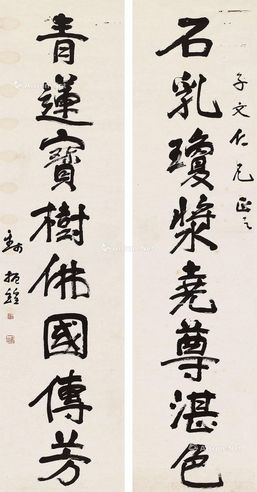 石乳瓊漿堯尊湛色
子文仁兄正之
青蓮寶樹佛國傳芳